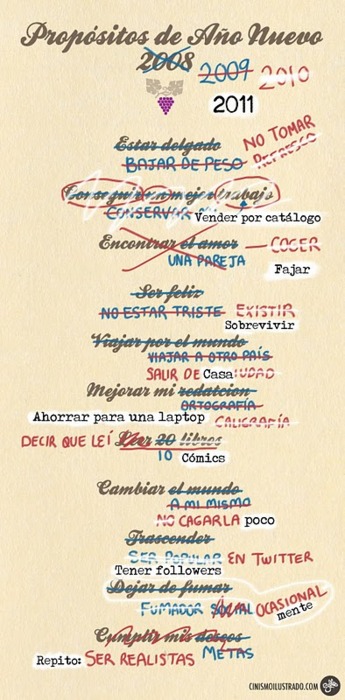 Propósitos de Año Nuevo
2008 2009 2010
2011
Estar delgado
BAJAR DE PESO
NO TOMAR
REFRESCO
Conseguir un mejor trabajo
CONSERVAR Vender por catálogo
Encontrar el amor COGER
UNA PAREJA
Fajar
Ser feliz
NO ESTAR TRISTE EXISTIR
Sobrevivir
Viajar por el mundo
VIAJAR A OTRO PAÍS
SALIR DE Casa IUDAD
Mejorar mi redatcion
ORTOGRAFÍA
Ahorrar para una laptop CALIGRAFÍA
DECIR QUE LEÍ Leer 20 libros
10 Cómics
Cambiar el mundo
A MI MISMO
NO CAGARLA poco
Trascender
SER POPULAR EN TWITTER
Tener followers
Dejar de fumar
FUMADOR SOCIAL OCASIONAL
mente
Cumplir mis deseos
METAS
Repito: SER REALISTAS
CINISMOILUSTRADO.COM